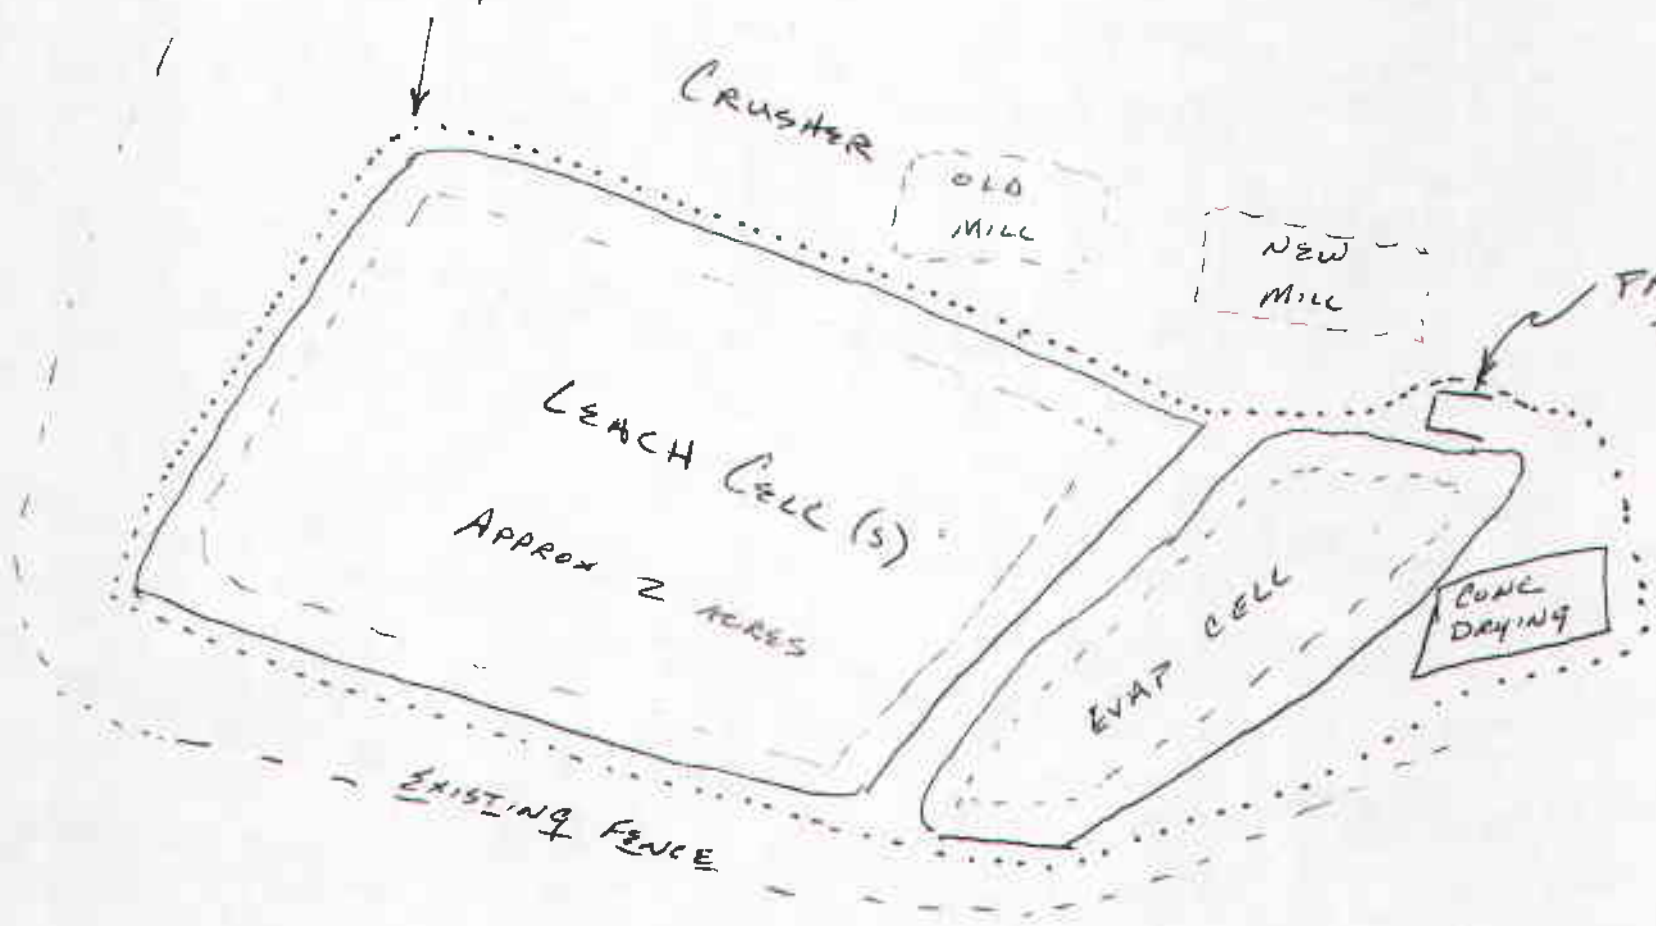 CRUSHER
OLD
MILL
NEW
MILL
LEACH CELL (S)
APPROX 2 ACRES
EVAP CELL
CONC
DRYING
EXISTING FENCE